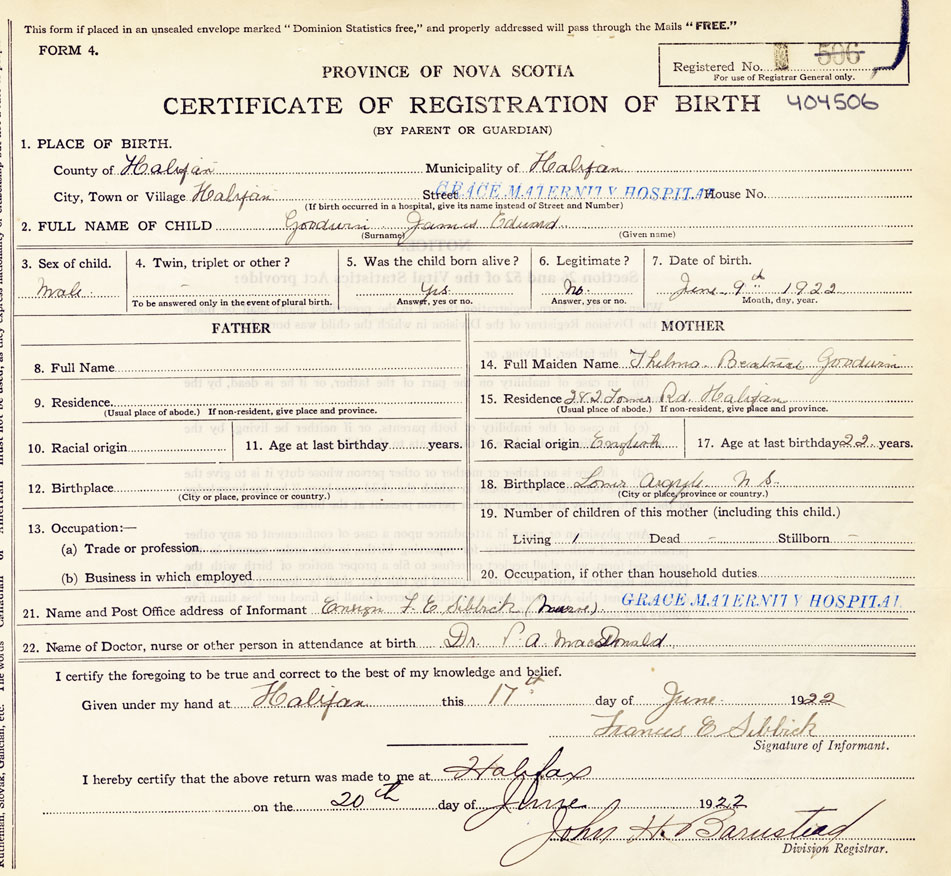 This form if placed in an unsealed envelope marked "Dominion Statistics free," and properly addressed will pass through the Mails "FREE."
FORM 4.
Registered No. 506
For use of Registrar General only.
PROVINCE OF NOVA SCOTIA
CERTIFICATE OF REGISTRATION OF BIRTH 404506
(BY PARENT OR GUARDIAN)
1. PLACE OF BIRTH.
County of Halifax Municipality of Halifax
City, Town or Village Halifax Street GRACE MATERNITY HOSPITAL House No.
(If birth occurred in a hospital, give its name instead of Street and Number)
2. FULL NAME OF CHILD Goodwin James Edward
(Surname) (Given name)
3. Sex of child. 4. Twin, triplet or other? 5. Was the child born alive? 6. Legitimate? 7. Date of birth.
Male - Yes No. June 9th 1922
To be answered only in the event of plural birth. Answer, yes or no. Answer, yes or no. Month, day, year.
FATHER MOTHER
8. Full Name 14. Full Maiden Name Thelma Beatrice Goodwin
9. Residence. 15. Residence 282 Tower Rd. Halifax
(Usual place of abode.) If non-resident, give place and province. (Usual place of abode.) If non-resident, give place and province.
10. Racial origin 11. Age at last birthday years. 16. Racial origin English 17. Age at last birthday 22 years.
12. Birthplace 18. Birthplace Lower Argyle N S.
(City or place, province or country.) (City or place, province or country.)
13. Occupation:— 19. Number of children of this mother (including this child.)
(a) Trade or profession Living 1 Dead - Stillborn -
(b) Business in which employed 20. Occupation, if other than household duties
21. Name and Post Office address of Informant Ensign F. E. Sibbick (Nurse) GRACE MATERNITY HOSPITAL
22. Name of Doctor, nurse or other person in attendance at birth Dr. P. A. MacDonald
I certify the foregoing to be true and correct to the best of my knowledge and belief.
Given under my hand at Halifax this 17th day of June 1922
Frances E Sibbick
Signature of Informant.
I hereby certify that the above return was made to me at Halifax
on the 20th day of June 1922
John H. Barnstead
Division Registrar.